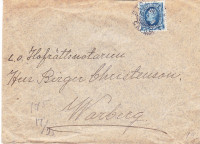 s.o. Hofrättsnotarien
Herr Birger Christenson,
Warberg